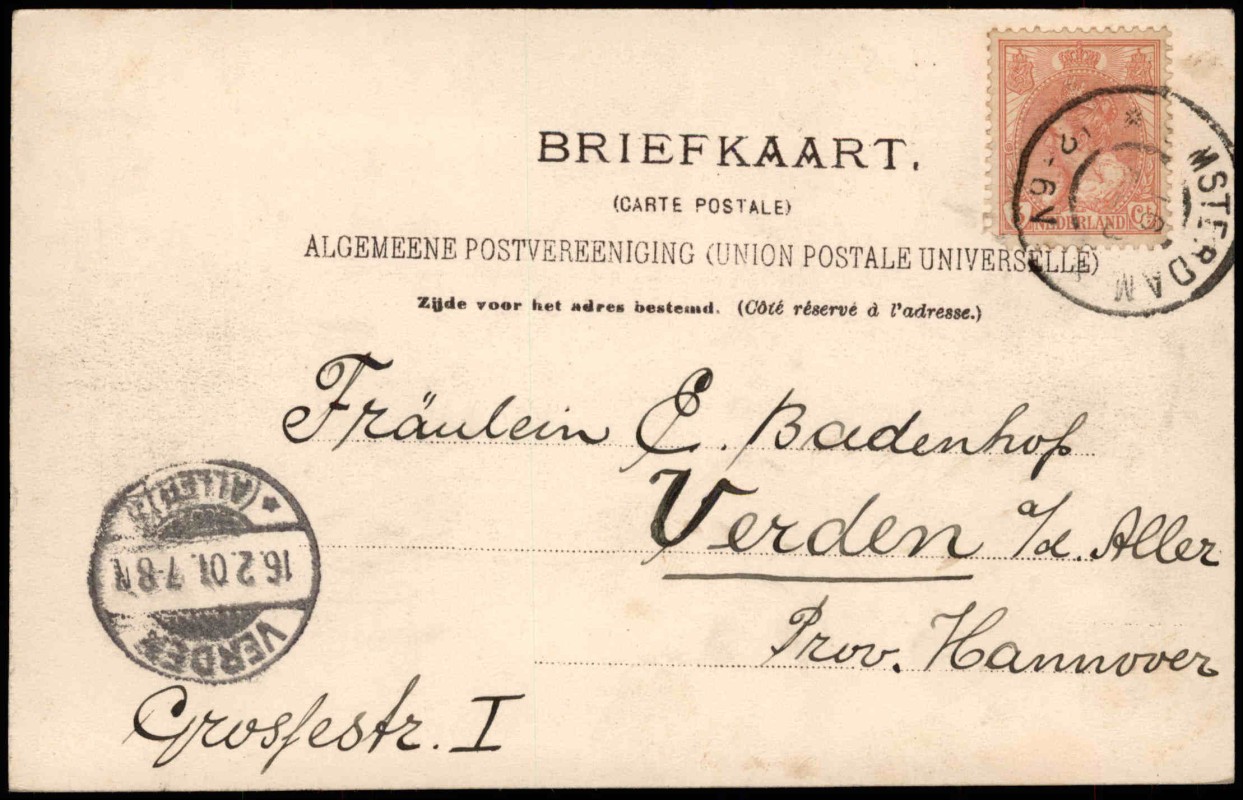 BRIEFKAART.
(CARTE POSTALE)
ALGEMEENE POSTVEREENIGING (UNION POSTALE UNIVERSELLE)
Zijde voor het adres bestemd. (Côté réservé à l'adresse.)
NEDERLAND
MSTERDAM
Fräulein E. Badenhop
Verden a/d. Aller
Prov. Hannover
Grossestr. I
VERDEN
16.2.01. 7-8N
(ALLER)